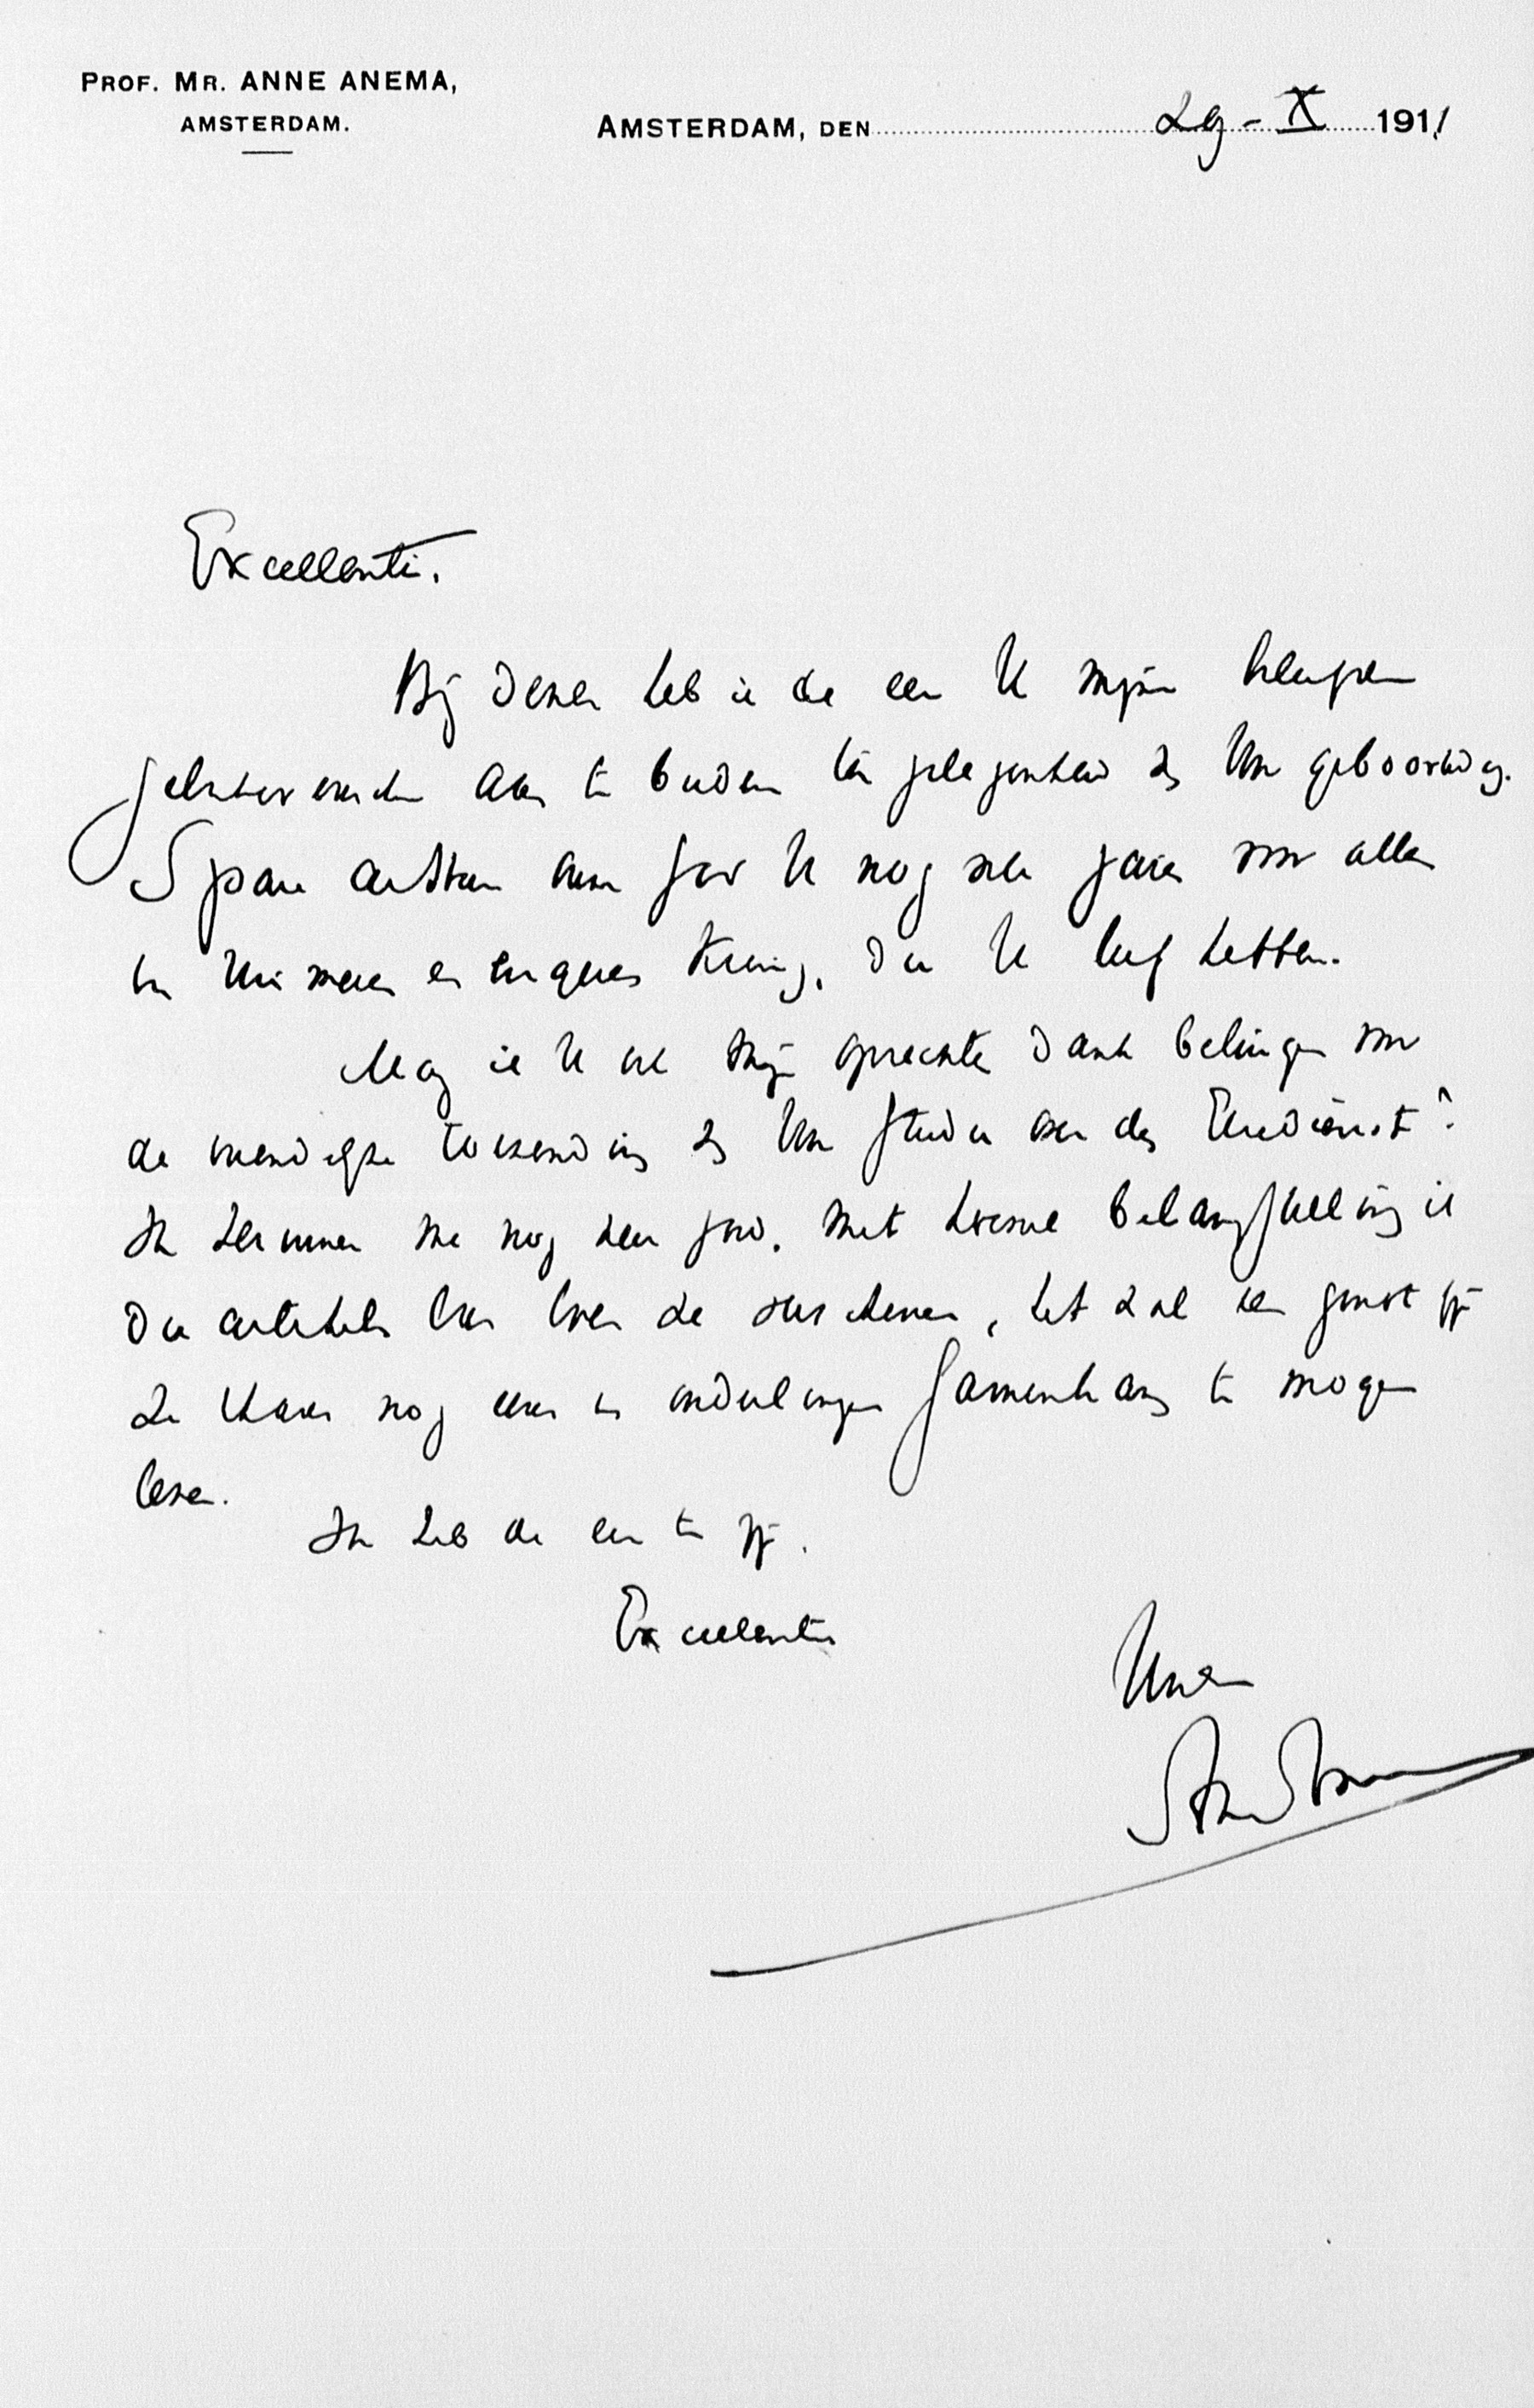 PROF. MR. ANNE ANEMA,
AMSTERDAM.
AMSTERDAM, DEN 29 - X 1911
Excellentie,
Bij dezen heb ik de eer U mijn
gelukwenschen aan te bieden ter gelegenheid van Uw geboortedag.
Spare onze God U nog vele jaren voor allen
in Uw meer en engeren kring, die U lief hebben.
Mag ik U ook mijn oprechte dank betuigen voor
de toezending van Uw studie over den Eeredienst?
Ik herinner me nog zeer goed, met hoeveel belangstelling ik
die artikelen las toen ze verschenen, het zal een genot zijn
ze thans nog eens in onderlingen samenhang te mogen
lezen.
Ik heb de eer te zijn,
Excellentie
Uwe